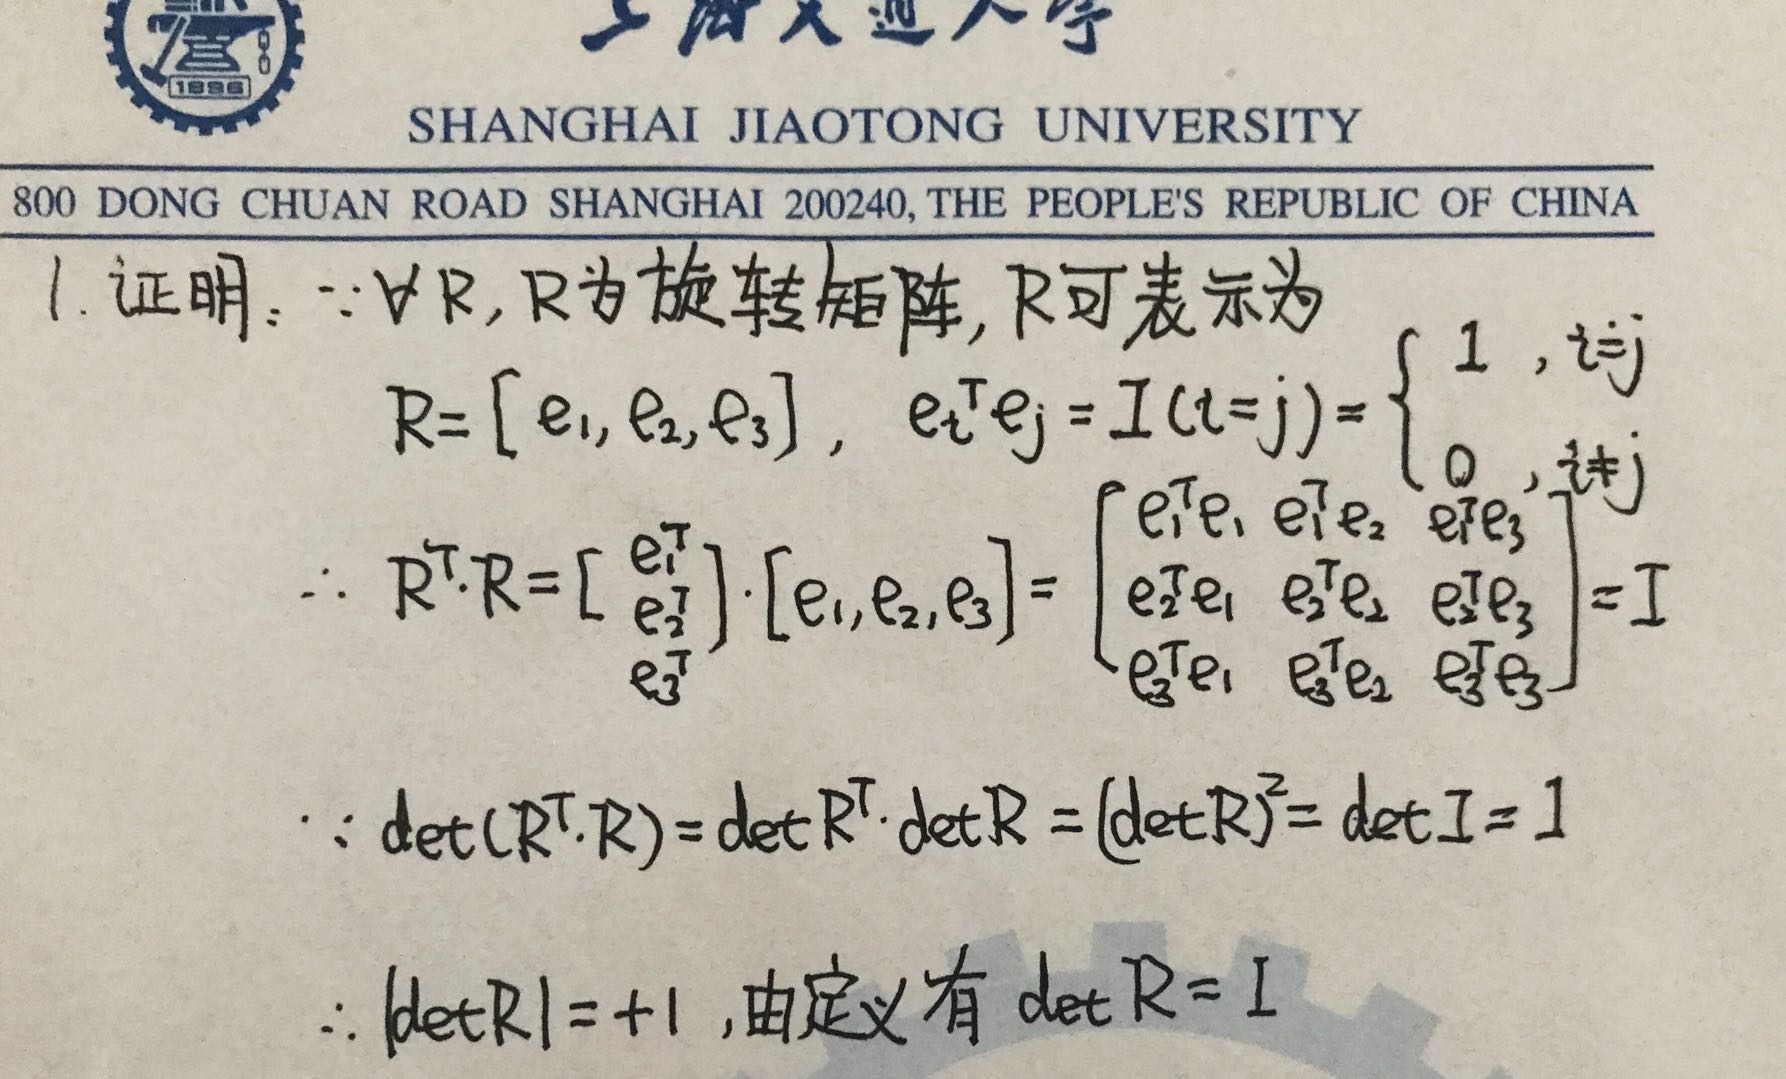 上海交通大学
1896
SHANGHAI JIAOTONG UNIVERSITY
800 DONG CHUAN ROAD SHANGHAI 200240, THE PEOPLE'S REPUBLIC OF CHINA
1. 证明: ∵ ∀R, R为旋转矩阵, R可表示为
R = [e₁, e₂, e₃], eᵢᵀeⱼ = I(i=j) = { 1, i=j; 0, i≠j
∴ Rᵀ·R = [e₁ᵀ; e₂ᵀ; e₃ᵀ]·[e₁, e₂, e₃] = [e₁ᵀe₁ e₁ᵀe₂ e₁ᵀe₃; e₂ᵀe₁ e₂ᵀe₂ e₂ᵀe₃; e₃ᵀe₁ e₃ᵀe₂ e₃ᵀe₃] = I
∵ det(Rᵀ·R) = detRᵀ·detR = (detR)² = detI = 1
∴ |detR| = +1, 由定义有 detR = 1